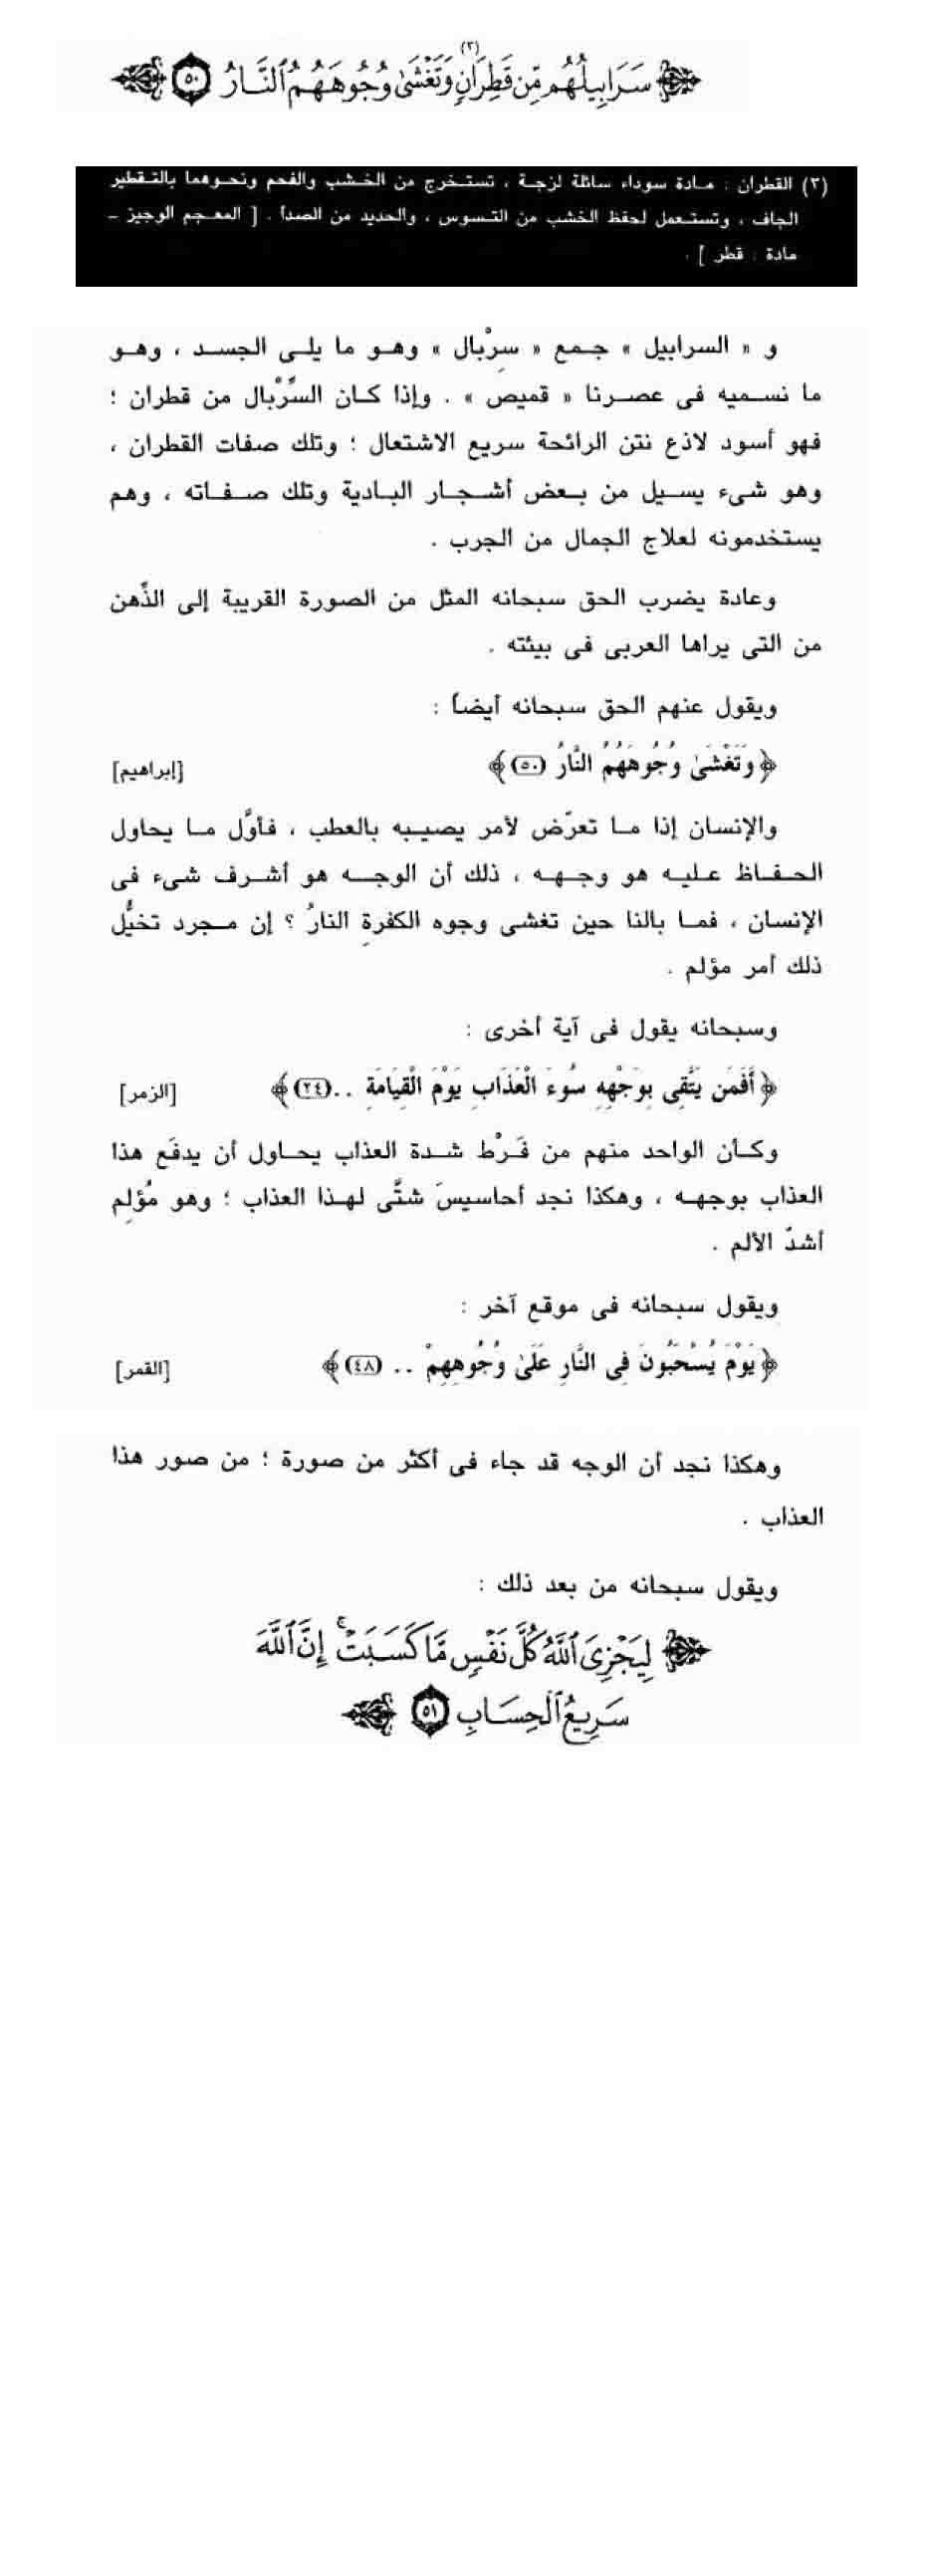 (٣)
﴿ سَرَابِيلُهُم مِّن قَطِرَانٍ وَتَغْشَىٰ وُجُوهَهُمُ ٱلنَّارُ ٥٠ ﴾
(٣) القطران : مادة سوداء سائلة لزجة ، تستخرج من الخشب والفحم ونحوهما بالتقطير
الجاف ، وتستعمل لحفظ الخشب من التسوس ، والحديد من الصدأ . [ المعجم الوجيز -
مادة : قطر ] .
و « السرابيل » جمع « سِرْبال » وهو ما يلى الجسد ، وهو
ما نسميه فى عصرنا « قميص » . وإذا كان السِّرْبال من قطران ؛
فهو أسود لاذع نتن الرائحة سريع الاشتعال ؛ وتلك صفات القطران ،
وهو شىء يسيل من بعض أشجار البادية وتلك صفاته ، وهم
يستخدمونه لعلاج الجمال من الجرب .
وعادة يضرب الحق سبحانه المثل من الصورة القريبة إلى الذِّهن
من التى يراها العربى فى بيئته .
ويقول عنهم الحق سبحانه أيضاً :
﴿ وَتَغْشَىٰ وُجُوهَهُمُ النَّارُ (٥٠) ﴾ [إبراهيم]
والإنسان إذا ما تعرَّض لأمر يصيبه بالعطب ، فأوَّل ما يحاول
الحفاظ عليه هو وجهه ، ذلك أن الوجه هو أشرف شىء فى
الإنسان ، فما بالنا حين تغشى وجوه الكفرةِ النارُ ؟ إن مجرد تخيُّل
ذلك أمر مؤلم .
وسبحانه يقول فى آية أخرى :
﴿ أَفَمَن يَتَّقِى بِوَجْهِهِ سُوءَ الْعَذَابِ يَوْمَ الْقِيَامَةِ ..(٢٤) ﴾ [الزمر]
وكأن الواحد منهم من فَرْط شدة العذاب يحاول أن يدفَع هذا
العذاب بوجهه ، وهكذا نجد أحاسيسَ شتَّى لهذا العذاب ؛ وهو مُؤلِم
أشدّ الألم .
ويقول سبحانه فى موقع آخر :
﴿ يَوْمَ يُسْحَبُونَ فِى النَّارِ عَلَىٰ وُجُوهِهِمْ .. (٤٨) ﴾ [القمر]
وهكذا نجد أن الوجه قد جاء فى أكثر من صورة ؛ من صور هذا
العذاب .
ويقول سبحانه من بعد ذلك :
﴿ لِيَجْزِىَ ٱللَّهُ كُلَّ نَفْسٍ مَّا كَسَبَتْ ۚ إِنَّ ٱللَّهَ
سَرِيعُ ٱلْحِسَابِ ٥١ ﴾